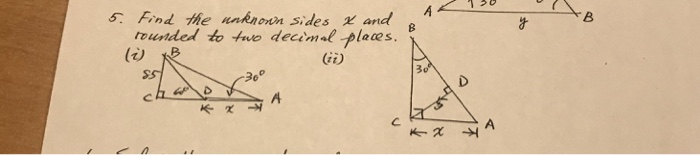 5. Find the unknown sides x and
rounded to two decimal places.
(i)
B
85
C
60
D
30°
A
x
(ii)
B
30°
D
5
C
A
x
A
30
y
B